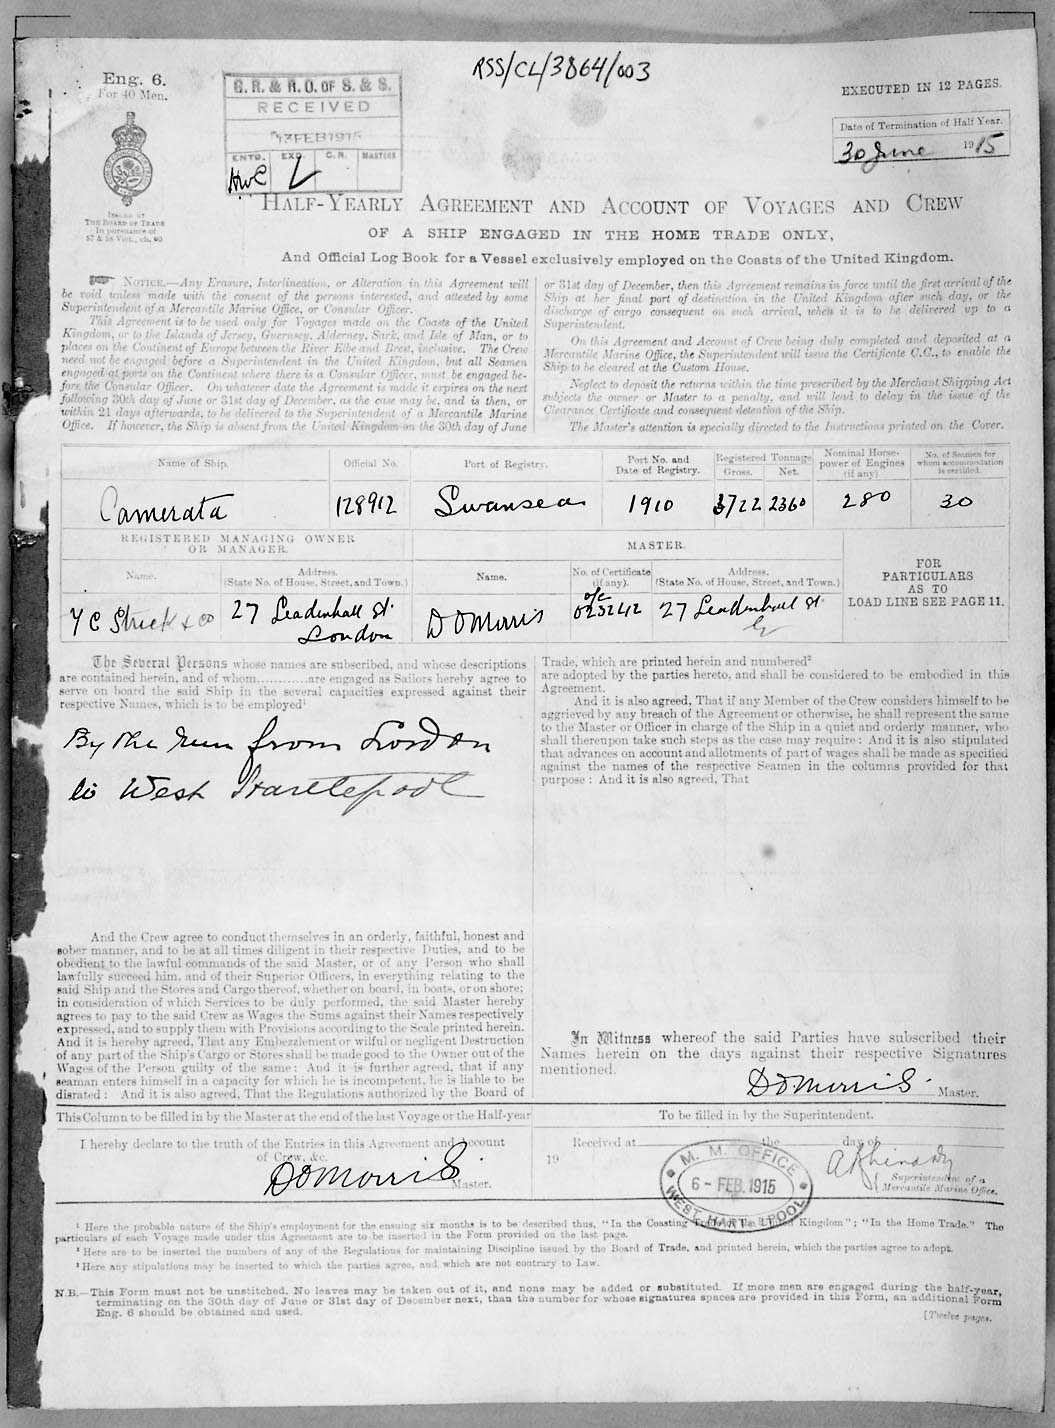 RSS/CL/3864/003
Eng. 6.
For 40 Men.
G. R. & R. O. OF S. & S.
RECEIVED
13 FEB 1915
ENTD. EXD. C.R. MASTERS
HWC L
EXECUTED IN 12 PAGES.
Date of Termination of Half Year.
30 June 1915
ISSUED BY
THE BOARD OF TRADE
In pursuance of
57 & 58 Vict., ch. 60
HALF-YEARLY AGREEMENT AND ACCOUNT OF VOYAGES AND CREW
OF A SHIP ENGAGED IN THE HOME TRADE ONLY,
And Official Log Book for a Vessel exclusively employed on the Coasts of the United Kingdom.
NOTICE.—Any Erasure, Interlineation, or Alteration in this Agreement will
be void unless made with the consent of the persons interested, and attested by some
Superintendent of a Mercantile Marine Office, or Consular Officer.
This Agreement is to be used only for Voyages made on the Coasts of the United
Kingdom, or to the Islands of Jersey, Guernsey, Alderney, Sark, and Isle of Man, or to
places on the Continent of Europe between the River Elbe and Brest, inclusive. The Crew
need not be engaged before a Superintendent in the United Kingdom, but all Seamen
engaged at ports on the Continent where there is a Consular Officer, must be engaged be-
fore the Consular Officer. On whatever date the Agreement is made it expires on the next
following 30th day of June or 31st day of December, as the case may be, and is then, or
within 21 days afterwards, to be delivered to the Superintendent of a Mercantile Marine
Office. If however, the Ship is absent from the United Kingdom on the 30th day of June
or 31st day of December, then this Agreement remains in force until the first arrival of the
Ship at her final port of destination in the United Kingdom after such day, or the
discharge of cargo consequent on such arrival, when it is to be delivered up to a
Superintendent.
On this Agreement and Account of Crew being duly completed and deposited at a
Mercantile Marine Office, the Superintendent will issue the Certificate C.C., to enable the
Ship to be cleared at the Custom House.
Neglect to deposit the returns within the time prescribed by the Merchant Shipping Act
subjects the owner or Master to a penalty, and will lead to delay in the issue of the
Clearance Certificate and consequent detention of the Ship.
The Master's attention is specially directed to the Instructions printed on the Cover.
Name of Ship. Official No. Port of Registry. Port No. and Date of Registry. Registered Tonnage Gross. Net. Nominal Horse-power of Engines (if any) No. of Seamen for whom accommodation is certified.
Camerata 128912 Swansea 1910 3722 2360 280 30
REGISTERED MANAGING OWNER OR MANAGER. MASTER.
Name. Address. (State No. of House, Street, and Town.) Name. No. of Certificate (if any). Address. (State No. of House, Street, and Town.)
FOR
PARTICULARS
AS TO
LOAD LINE SEE PAGE 11.
F C Strick & Co 27 Leadenhall St. London D O Morris o/c 025242 27 Leadenhall St
The Several Persons whose names are subscribed, and whose descriptions
are contained herein, and of whom............are engaged as Sailors hereby agree to
serve on board the said Ship in the several capacities expressed against their
respective Names, which is to be employed¹
By the run from London
to West Hartlepool
And the Crew agree to conduct themselves in an orderly, faithful, honest and
sober manner, and to be at all times diligent in their respective Duties, and to be
obedient to the lawful commands of the said Master, or of any Person who shall
lawfully succeed him, and of their Superior Officers, in everything relating to the
said Ship and the Stores and Cargo thereof, whether on board, in boats, or on shore;
in consideration of which Services to be duly performed, the said Master hereby
agrees to pay to the said Crew as Wages the Sums against their Names respectively
expressed, and to supply them with Provisions according to the Scale printed herein.
And it is hereby agreed, That any Embezzlement or wilful or negligent Destruction
of any part of the Ship's Cargo or Stores shall be made good to the Owner out of the
Wages of the Person guilty of the same: And it is further agreed, that if any
seaman enters himself in a capacity for which he is incompetent, he is liable to be
disrated: And it is also agreed, That the Regulations authorized by the Board of
Trade, which are printed herein and numbered²
are adopted by the parties hereto, and shall be considered to be embodied in this
Agreement.
And it is also agreed, That if any Member of the Crew considers himself to be
aggrieved by any breach of the Agreement or otherwise, he shall represent the same
to the Master or Officer in charge of the Ship in a quiet and orderly manner, who
shall thereupon take such steps as the case may require: And it is also stipulated
that advances on account and allotments of part of wages shall be made as specified
against the names of the respective Seamen in the columns provided for that
purpose: And it is also agreed, That
In Witness whereof the said Parties have subscribed their
Names herein on the days against their respective Signatures
mentioned.
D O Morris. Master.
This Column to be filled in by the Master at the end of the last Voyage or the Half-year
I hereby declare to the truth of the Entries in this Agreement and Account
of Crew, &c.
D O Morris. Master.
To be filled in by the Superintendent.
Received at the day of
19
Superintendent of a
Mercantile Marine Office.
M. M. OFFICE
6 - FEB. 1915
WEST HARTLEPOOL
¹ Here the probable nature of the Ship's employment for the ensuing six months is to be described thus, "In the Coasting Trade of the United Kingdom"; "In the Home Trade." The
particulars of each Voyage made under this Agreement are to be inserted in the Form provided on the last page.
² Here are to be inserted the numbers of any of the Regulations for maintaining Discipline issued by the Board of Trade, and printed herein, which the parties agree to adopt.
³ Here any stipulations may be inserted to which the parties agree, and which are not contrary to Law.
N.B.—This Form must not be unstitched. No leaves may be taken out of it, and none may be added or substituted. If more men are engaged during the half-year,
terminating on the 30th day of June or 31st day of December next, than the number for whose signatures spaces are provided in this Form, an additional Form
Eng. 6 should be obtained and used.
[Twelve pages.